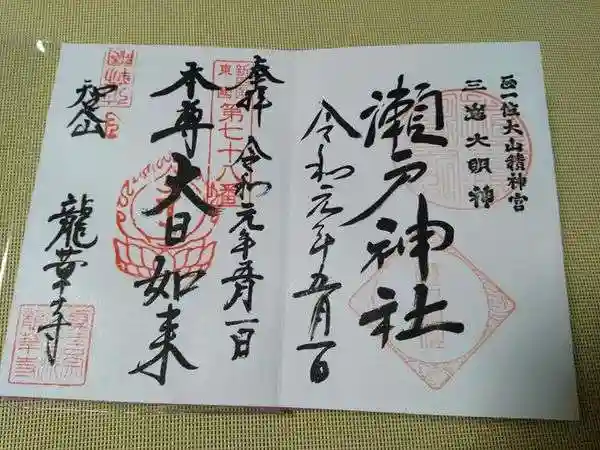 正一位大山積神宮
三島大明神
瀬戸神社
令和元年五月一日
奉拝
令和元年五月一日
新
東
第七十八番
本尊大日如来
知足山
龍華寺